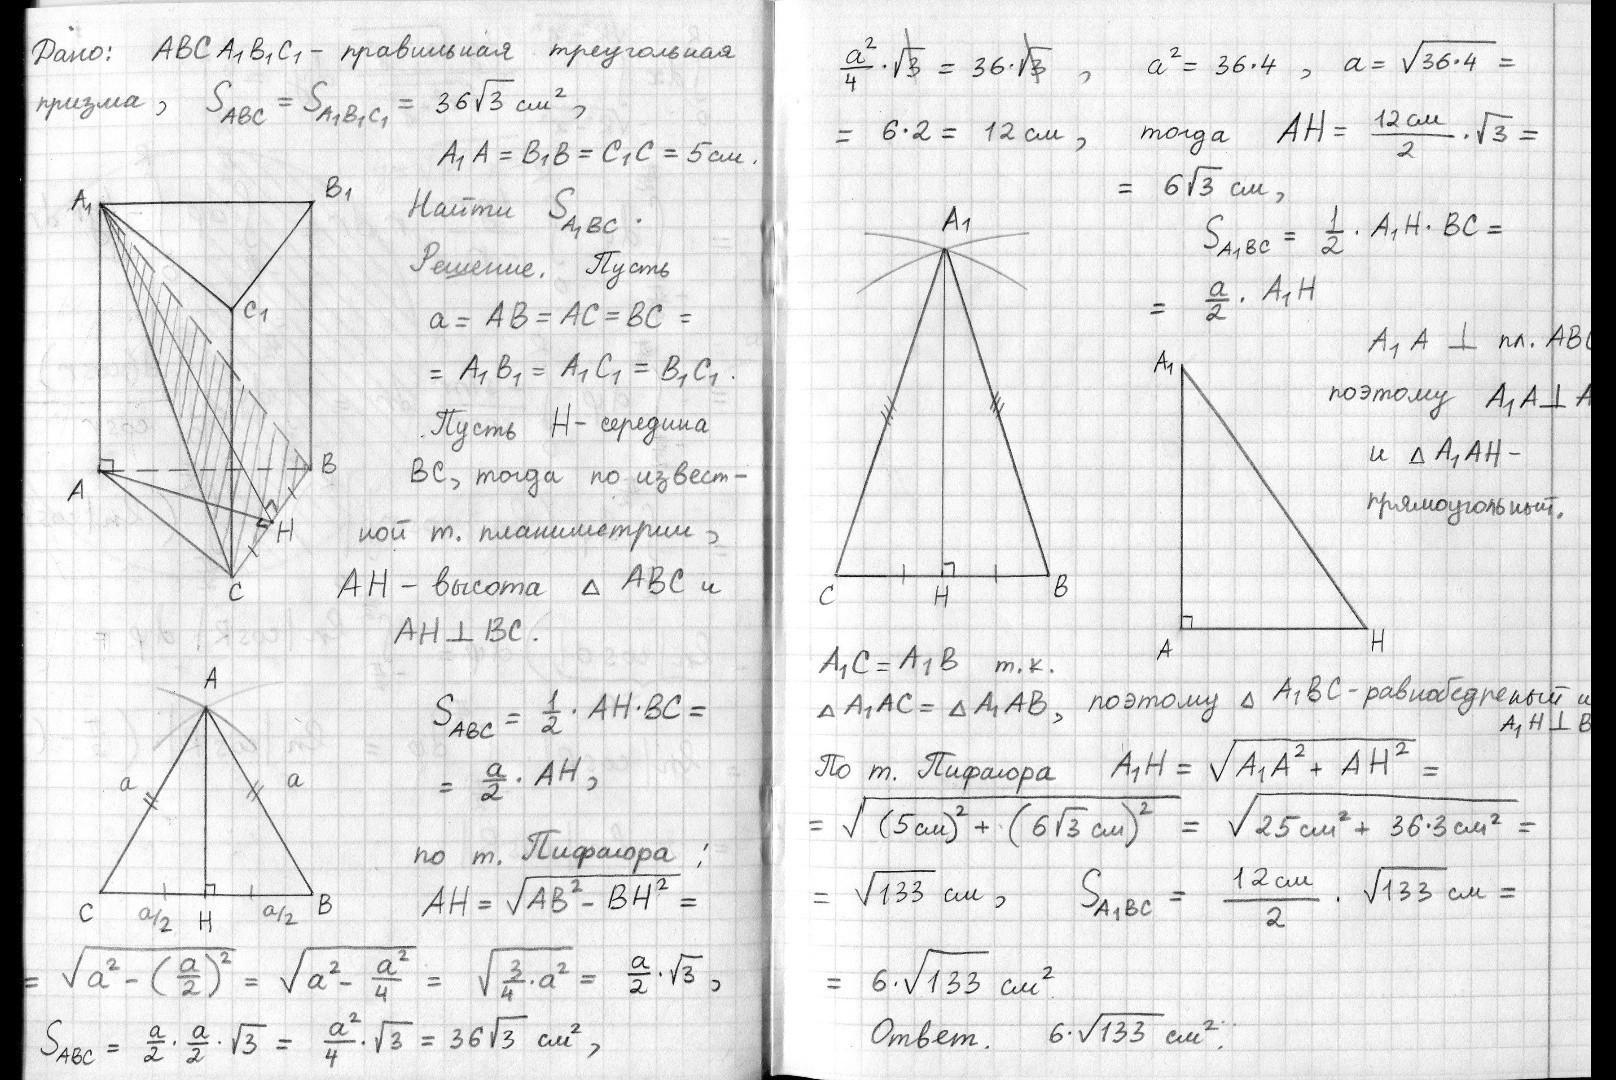 Дано: ABCA₁B₁C₁ - правильная треугольная
призма, S_ABC = S_A₁B₁C₁ = 36√3 см²,
A₁A = B₁B = C₁C = 5 см.
Найти S_A₁BC.
Решение. Пусть
a = AB = AC = BC =
= A₁B₁ = A₁C₁ = B₁C₁.
Пусть H - середина
BC, тогда по извест-
ной т. планиметрии,
AH - высота △ ABC и
AH ⊥ BC.
A₁
B₁
C₁
A
B
H
C
A
a
a
C
a/2
H
a/2
B
S_ABC = 1/2 · AH · BC =
= a/2 · AH,
по т. Пифагора:
AH = √(AB² - BH²) =
= √(a² - (a/2)²) = √(a² - a²/4) = √(3/4 · a²) = a/2 · √3,
S_ABC = a/2 · a/2 · √3 = a²/4 · √3 = 36√3 см²,
a²/4 · √3 = 36 · √3, a² = 36·4, a = √(36·4) =
= 6·2 = 12 см, тогда AH = 12 см/2 · √3 =
= 6√3 см,
S_A₁BC = 1/2 · A₁H · BC =
= a/2 · A₁H
A₁A ⊥ пл. ABC
поэтому A₁A ⊥ A
и △ A₁AH -
прямоугольный.
A₁
C
H
B
A₁
A
H
A₁C = A₁B т.к.
△ A₁AC = △ A₁AB, поэтому △ A₁BC - равнобедреный и
A₁H ⊥ B
По т. Пифагора A₁H = √(A₁A² + AH²) =
= √((5см)² + (6√3 см)²) = √(25см² + 36·3см²) =
= √133 см, S_A₁BC = 12 см/2 · √133 см =
= 6·√133 см²
Ответ. 6·√133 см².